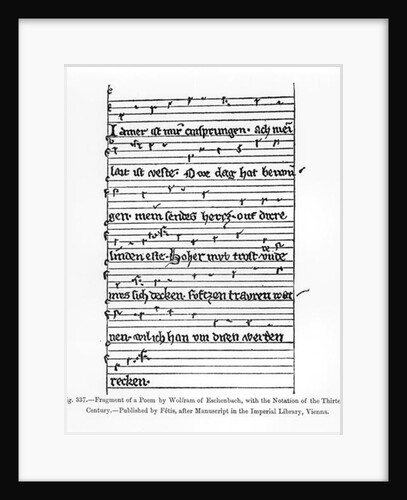 Iamer ist mir entsprungen. ach mein
lait ist veste. O we dag hat betwū
gen. mein sendes hercz. ouf dirre
linden este. Hoher mvt trost vnde
mes sich decken. svftzen travren wat
nen. wil ich han vm disen werten
recken.
ig. 337.—Fragment of a Poem by Wolfram of Eschenbach, with the Notation of the Thirte
Century.—Published by Fétis, after Manuscript in the Imperial Library, Vienna.